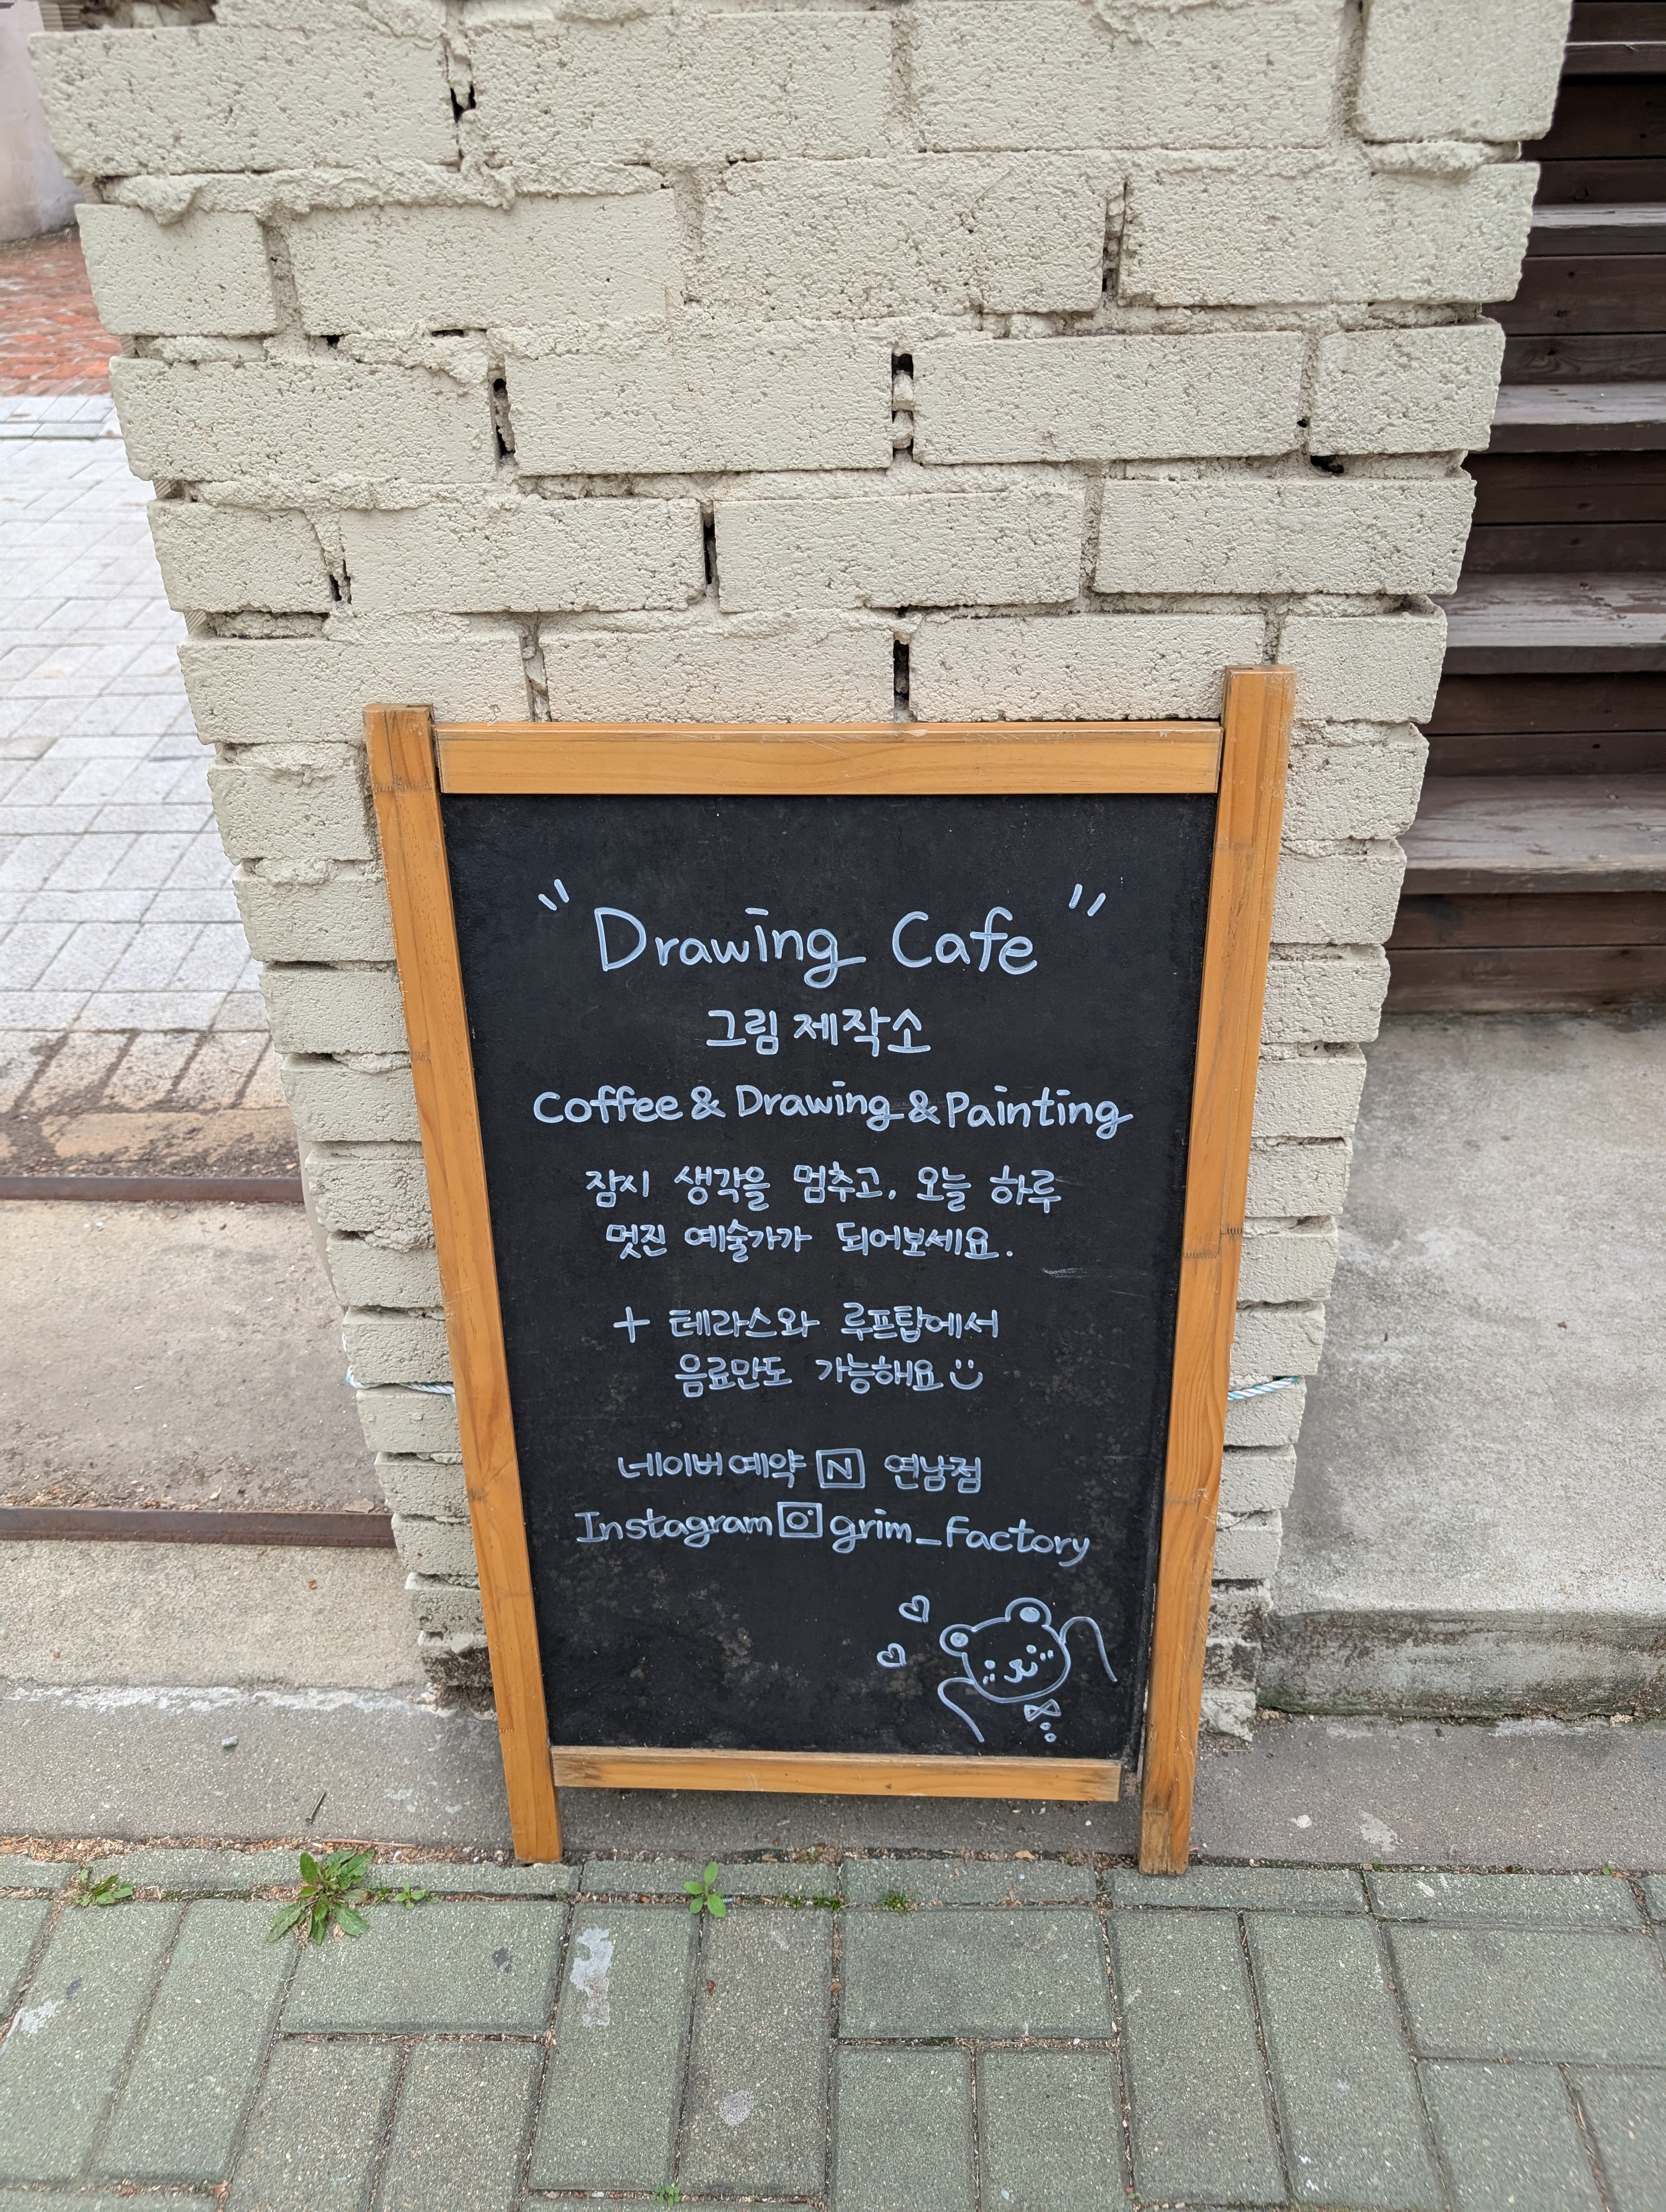 "Drawing Cafe"
그림 제작소
Coffee & Drawing & Painting
잠시 생각을 멈추고, 오늘 하루
멋진 예술가가 되어보세요.
+ 테라스와 루프탑에서
음료만도 가능해요
네이버예약 N 연남점
Instagram grim_factory